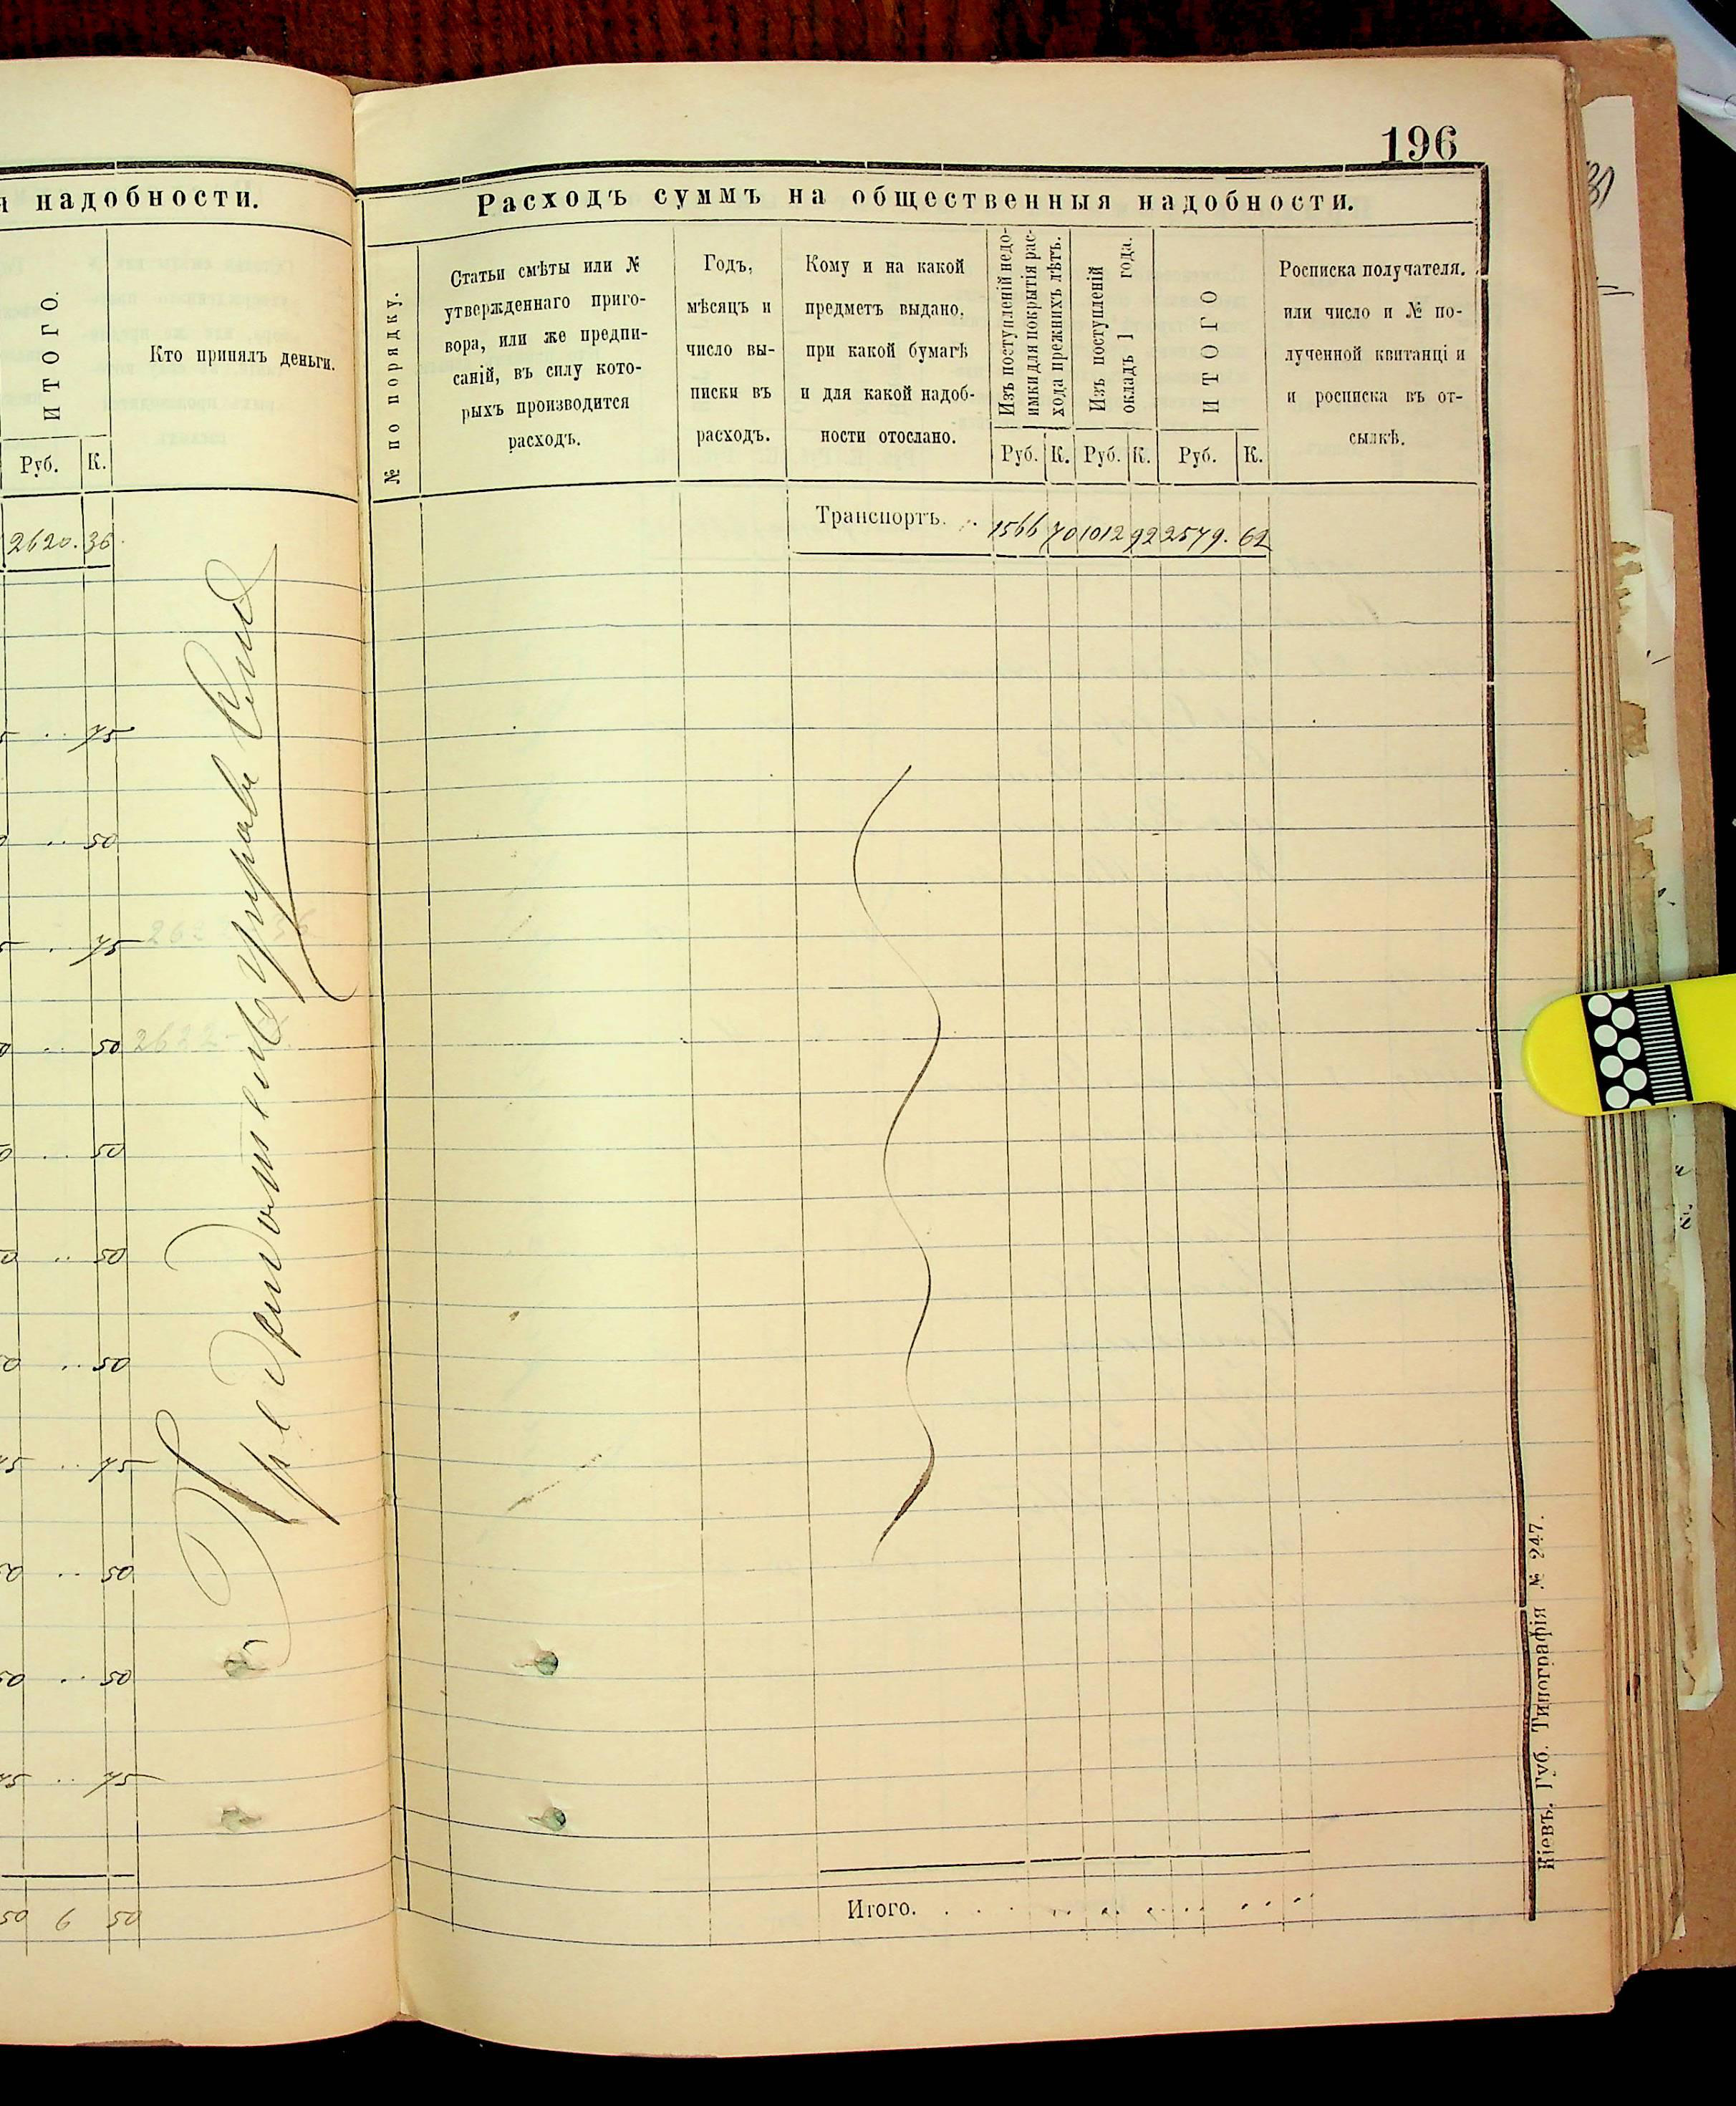 196
надобности.
ИТОГО.
Кто принялъ деньги.
Руб. К.
2620. 36.
75
50
75
50
50
50
50
75
50
50
75
50 9 50
Расходъ суммъ на общественныя надобности.
№ по порядку.
Статьи смѣты или №
утвержденнаго приго-
вора, или же предпи-
саній, въ силу кото-
рыхъ производится
расходъ.
Годъ,
мѣсяцъ и
число вы-
писки въ
расходъ.
Кому и на какой
предметъ выдано,
при какой бумагѣ
и для какой надоб-
ности отослано.
Изъ поступленій недо-
имки для покрытія рас-
хода прежнихъ лѣтъ.
Изъ поступленій
окладъ 1 года.
ИТОГО
Росписка получателя,
или число и № по-
лученной квитанціи
и росписка въ от-
сылкѣ.
Руб. К. Руб. К. Руб. К.
Транспортъ. . . 1566 70 1012 92 2579. 62
Итого. . . . .
Кіевъ. Губ. Типографія № 247.